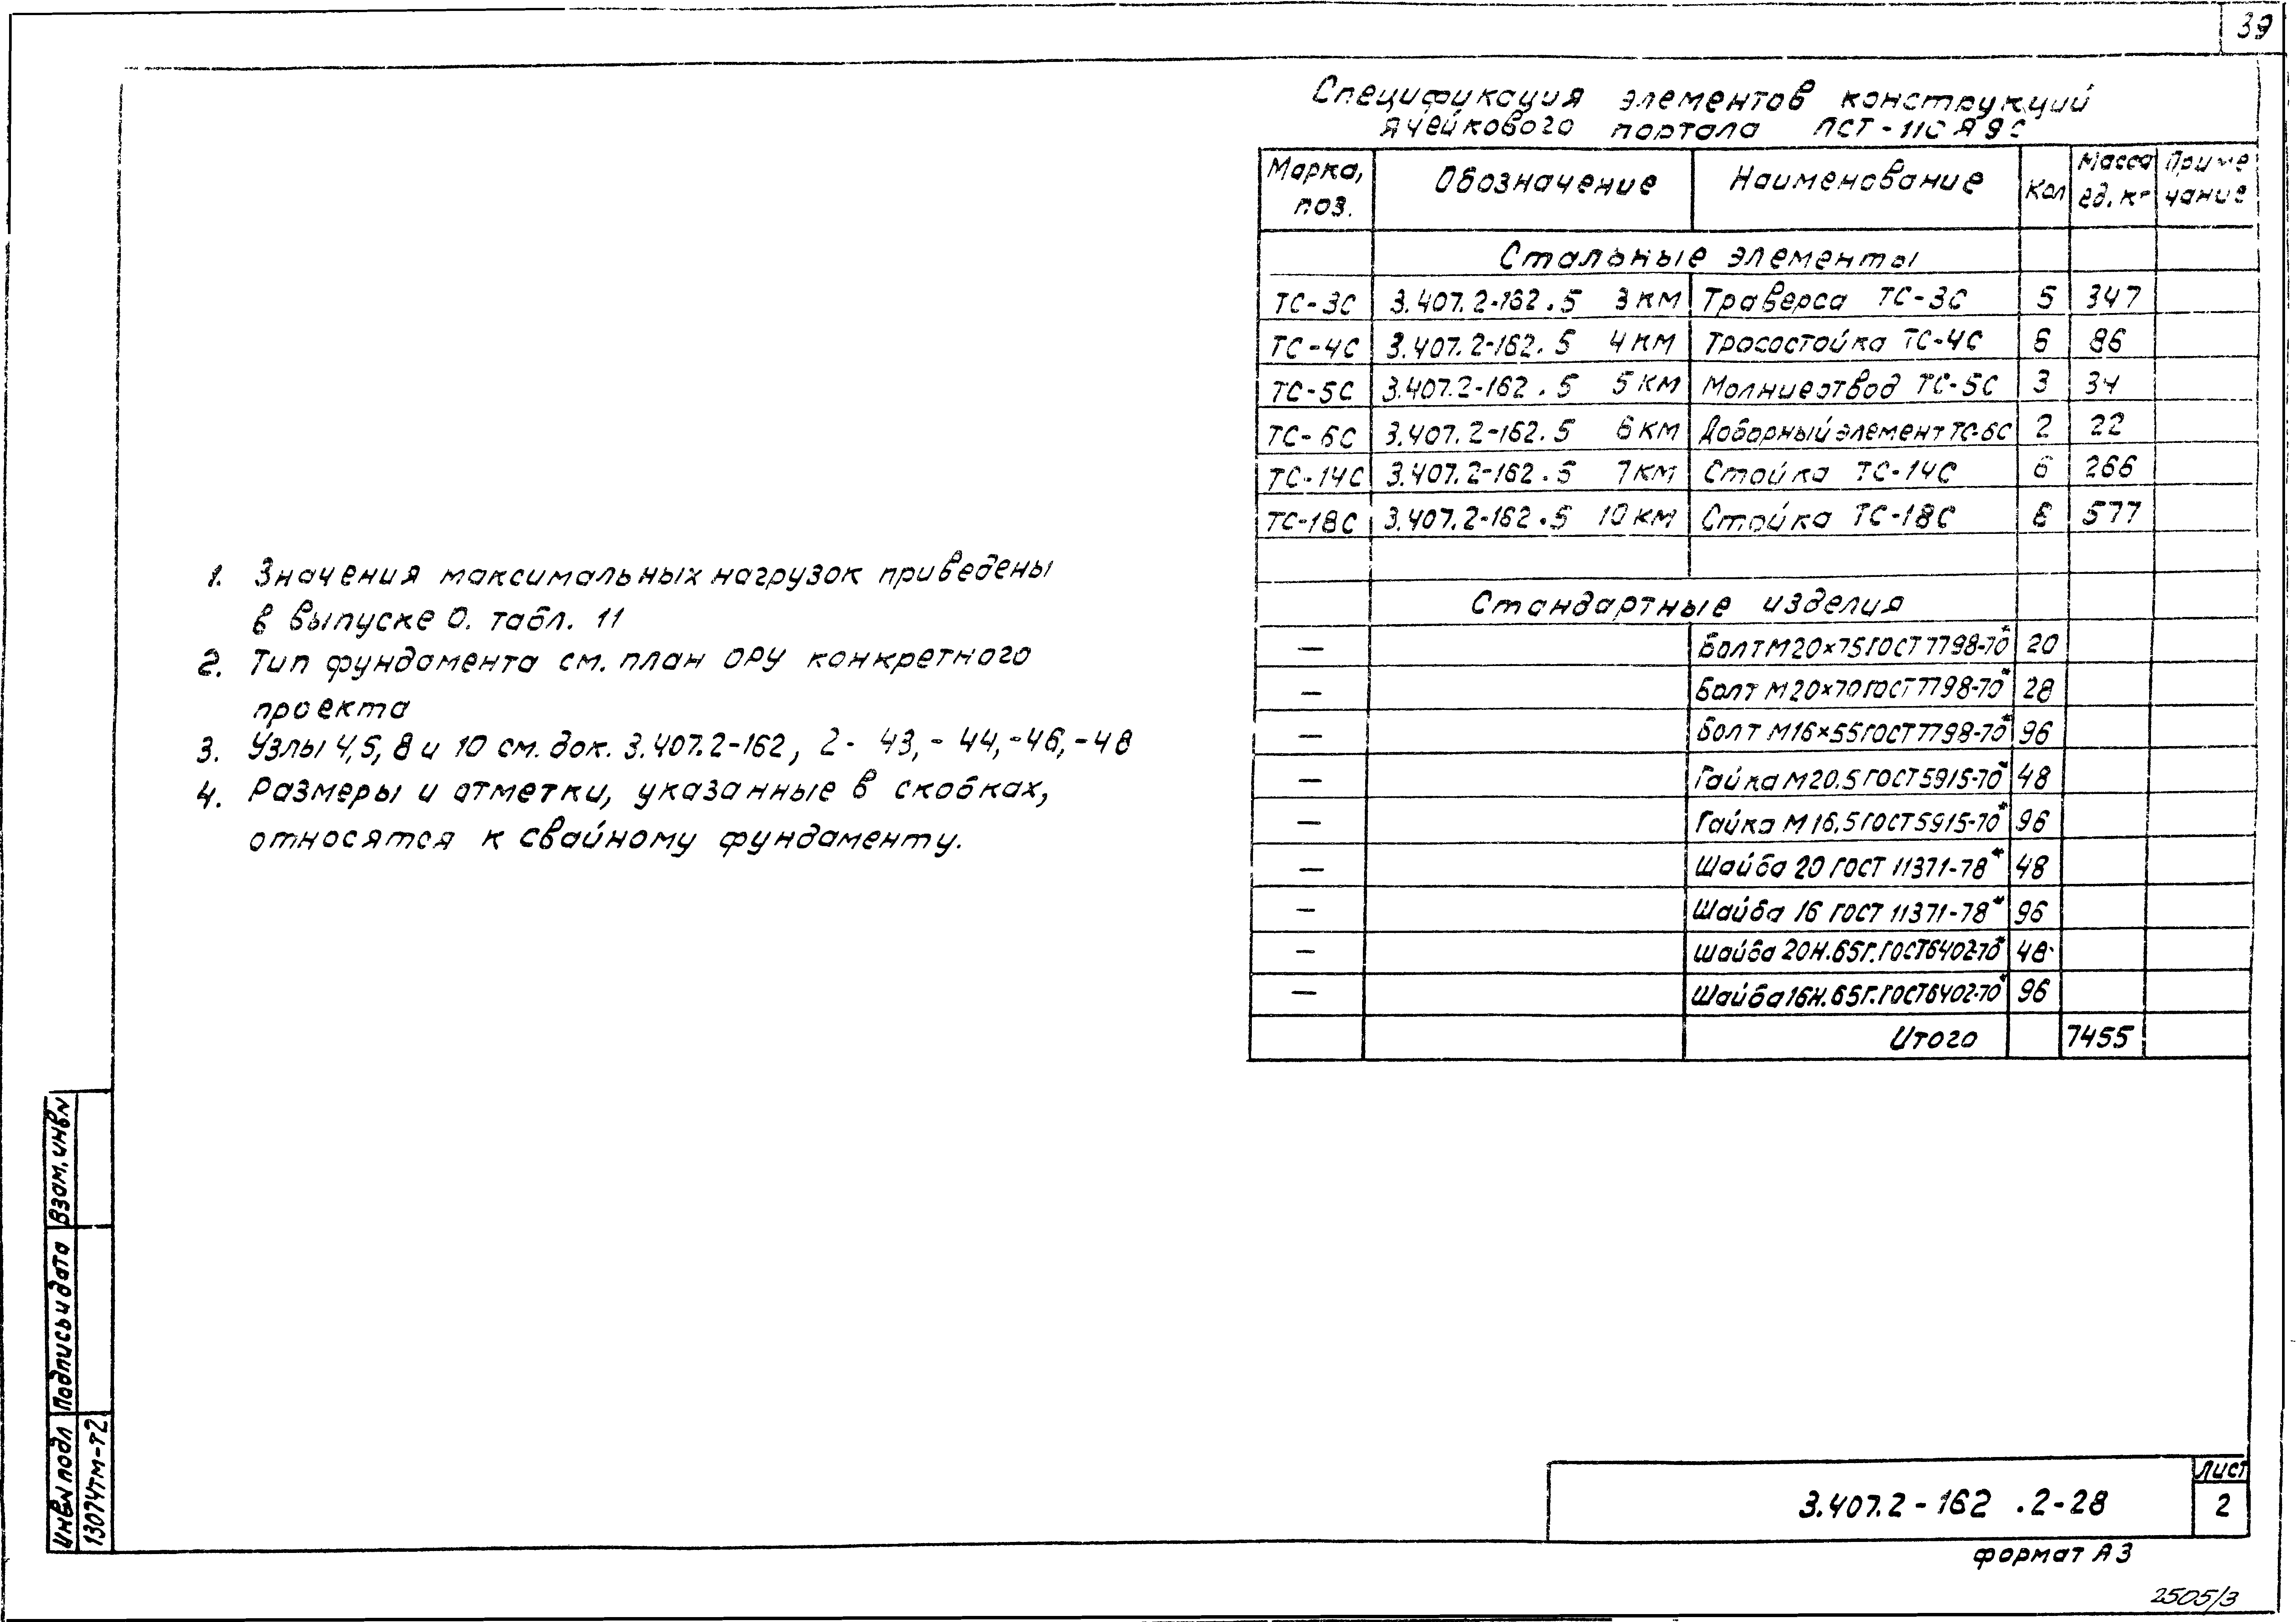 39
Спецификация элементов конструкций
ячейкового портала ПСТ-110Я9С
Марка, поз. Обозначение Наименование Кол Масса ед. кг Примечание
Стальные элементы
ТС-3С 3.407.2-162.5 3КМ Траверса ТС-3С 5 347
ТС-4С 3.407.2-162.5 4КМ Тросостойка ТС-4С 6 86
ТС-5С 3.407.2-162.5 5КМ Молниеотвод ТС-5С 3 34
ТС-6С 3.407.2-162.5 6КМ Доборный элемент ТС-6С 2 22
ТС-14С 3.407.2-162.5 7КМ Стойка ТС-14С 6 266
ТС-18С 3.407.2-162.5 10КМ Стойка ТС-18С 6 577
Стандартные изделия
— Болт М20×75 ГОСТ 7798-70* 20
— Болт М20×70 ГОСТ 7798-70* 28
— Болт М16×55 ГОСТ 7798-70* 96
— Гайка М20.5 ГОСТ 5915-70* 48
— Гайка М16.5 ГОСТ 5915-70* 96
— Шайба 20 ГОСТ 11371-78* 48
— Шайба 16 ГОСТ 11371-78* 96
— Шайба 20Н.65Г. ГОСТ 6402-70* 48
— Шайба 16Н.65Г. ГОСТ 6402-70* 96
Итого 7455
1. Значения максимальных нагрузок приведены
в выпуске 0. табл. 11
2. Тип фундамента см. план ОРУ конкретного
проекта
3. Узлы 4,5, 8 и 10 см. док. 3.407.2-162, 2- 43,- 44,-46,-48
4. Размеры и отметки, указанные в скобках,
относятся к свайному фундаменту.
Взам. инв№
Подпись и дата
Инв№ подл
13074тм-т2
3.407.2-162 .2-28
Лист
2
формат А3
2505/3